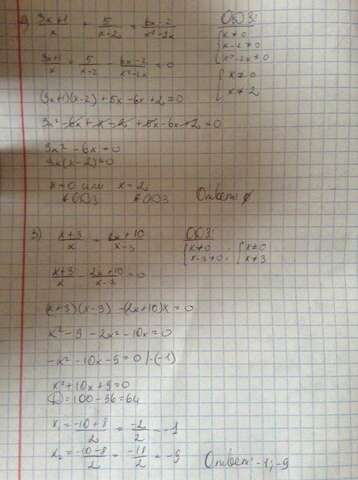 3x+1/x + 5/x-2 = 6x-2/x²-2x ОДЗ:
3x+1/x + 5/x-2 - 6x-2/x²-2x = 0 { x≠0 x-2≠0 x²-2x≠0
(3x+1)(x-2)+5x-6x+2=0 { x≠0 x≠2
3x²-6x+x-2+5x-6x+2=0
3x²-6x=0
3x(x-2)=0
x=0 или x=2
∉ОДЗ ∉ОДЗ Ответ: ∅
3) x+3/x = 2x+10/x-3 ОДЗ:
x+3/x - 2x+10/x-3 = 0 { x≠0 x-3≠0 { x≠0 x≠3
(x+3)(x-3)-(2x+10)x=0
x²-9-2x²-10x=0
-x²-10x-9=0 |·(-1)
x²+10x+9=0
D=100-36=64
x₁=-10+8/2=-2/2=-1
x₂=-10-8/2=-18/2=-9 Ответ: -1; -9